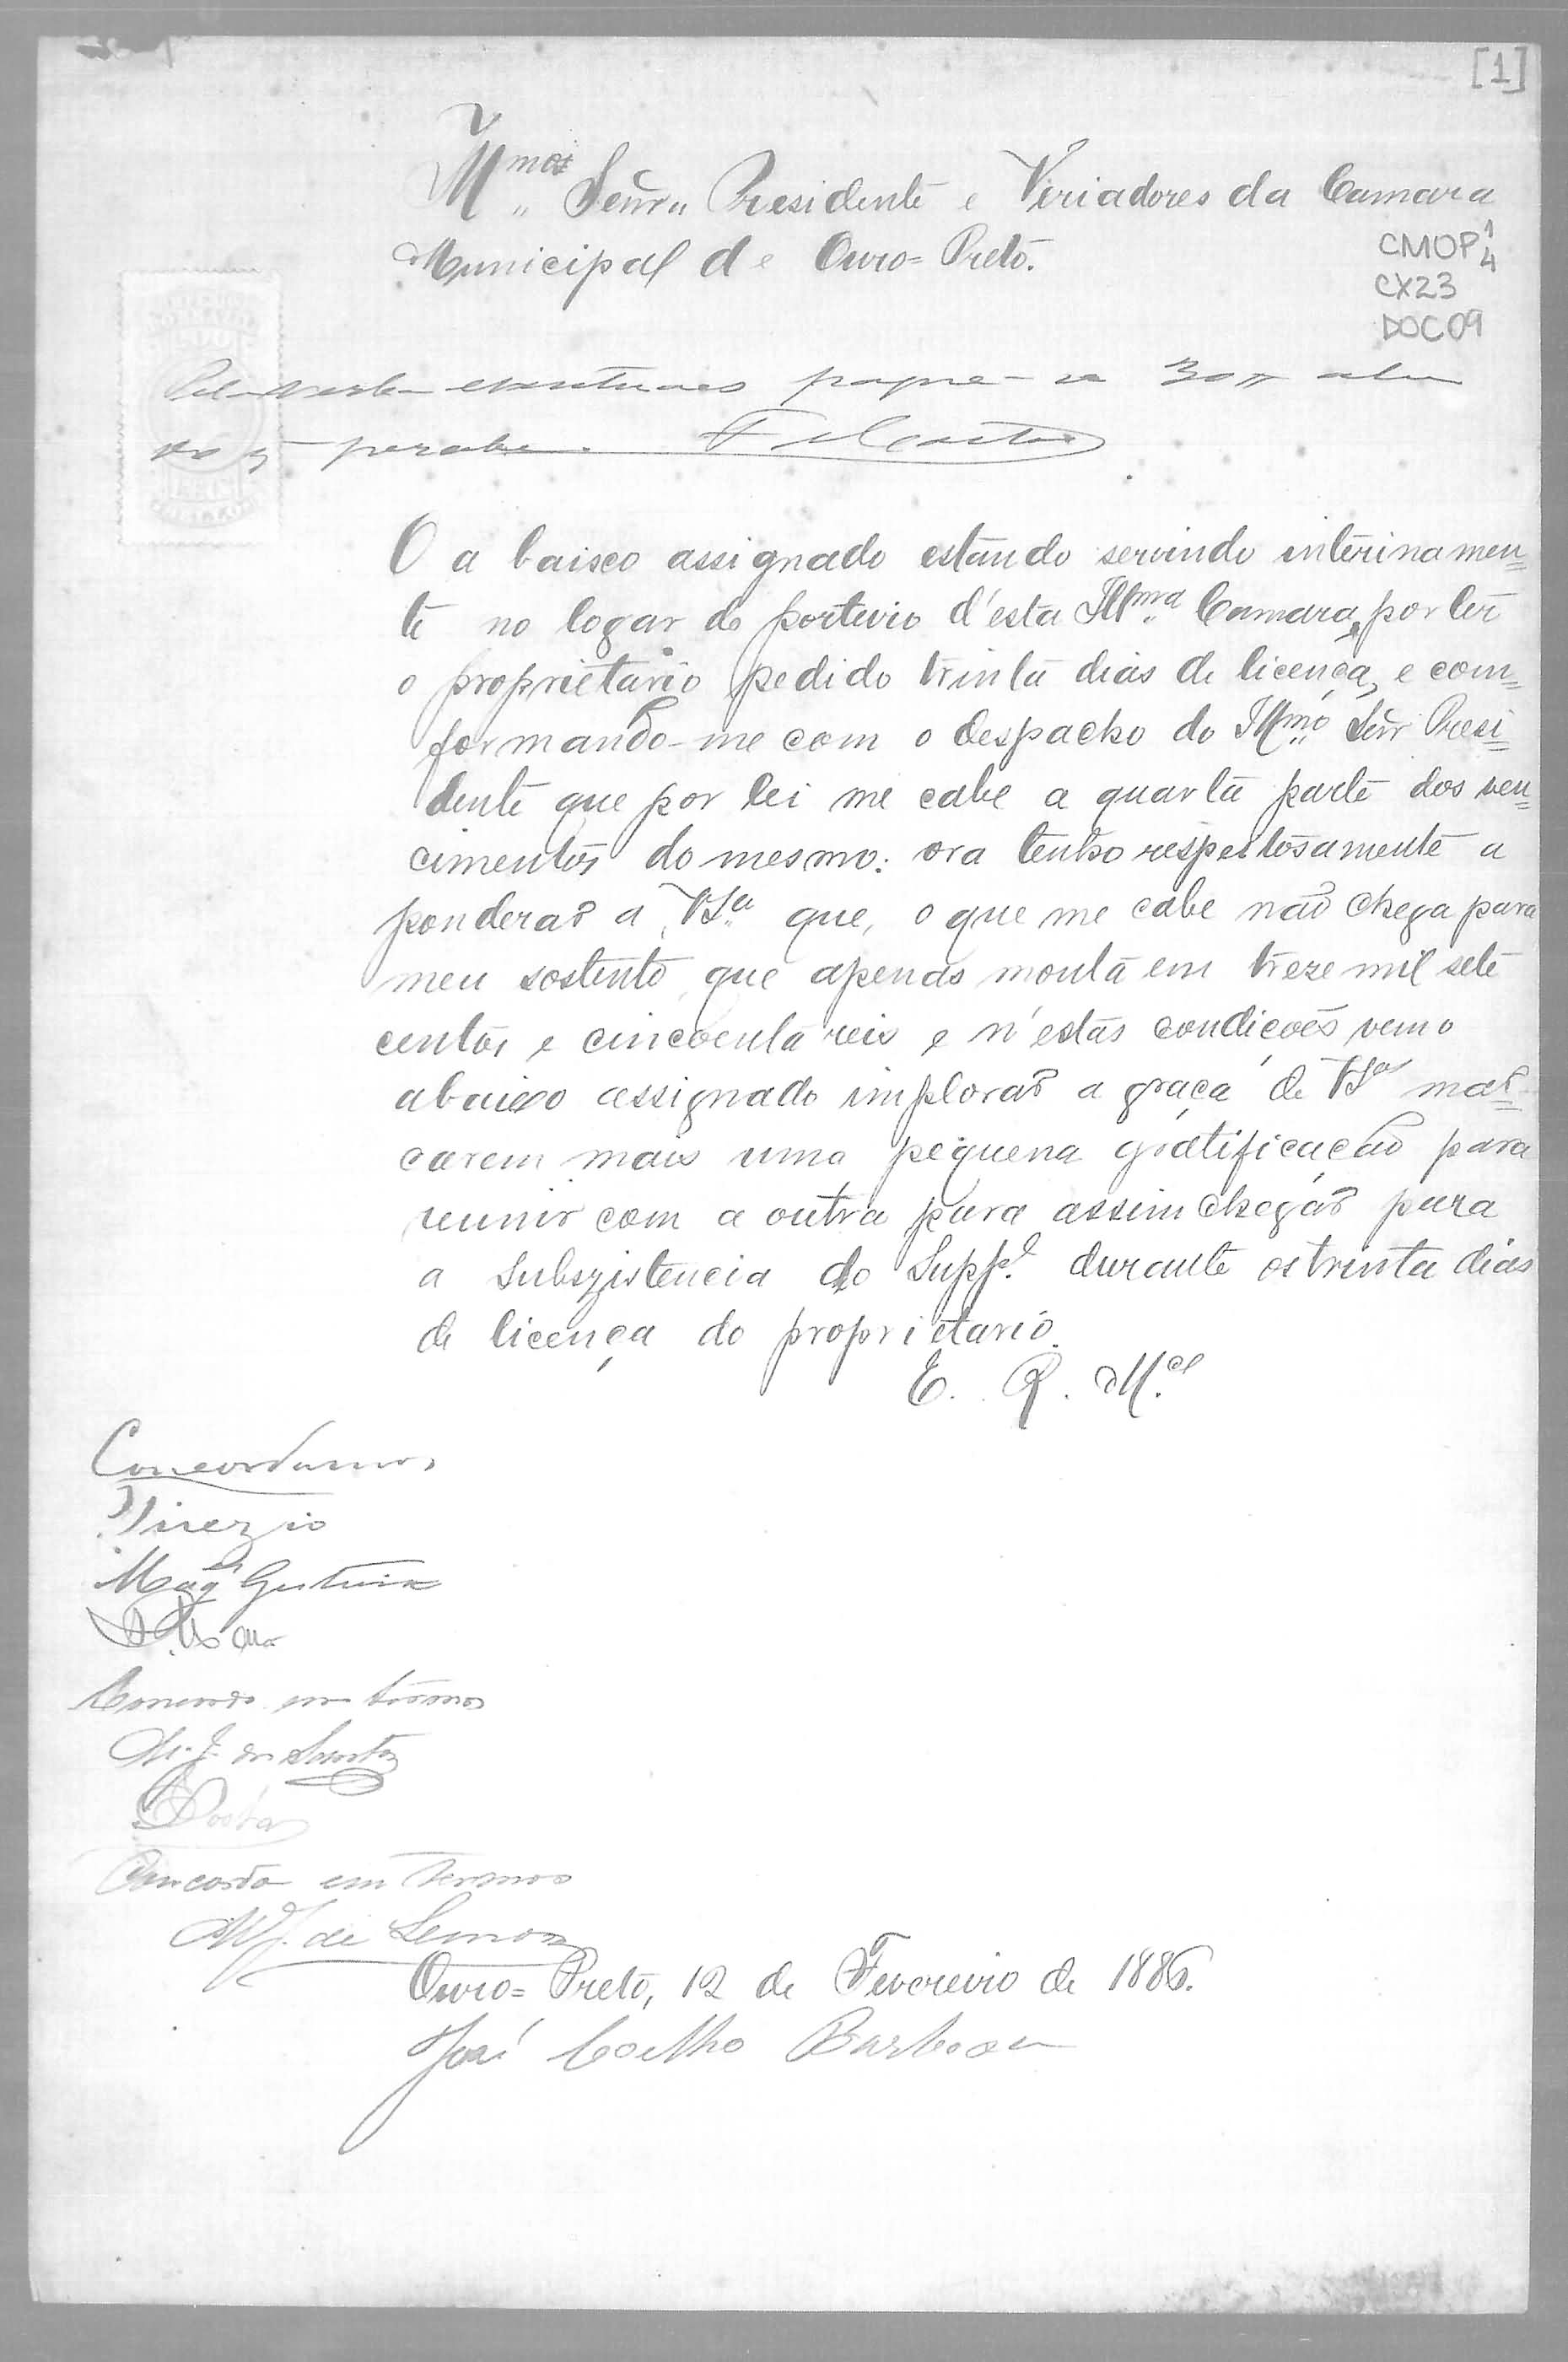 [1]
Illmos Senr.. Presidente e Veriadores da Camara
Municipal de Ouro=Preto.
CMOP 1/4
CX23
DOC09
pague-se 30$ alem
do q percebe.
O a baixo assignado estando servindo interinamen=
te no logar do porteiro d'esta Illma Camara, por ter
o proprietario pedido trinta dias de licença, e com=
formando-me com o despacho do Illmo Senr Presi=
dente que por lei me cabe a quarta parte dos ven=
cimentos do mesmo: ora tenho respeitosamente a
ponderar a VSa que, o que me cabe não chega para
meu sostento, que apenas monta em treze mil sete
centos e cincoenta reis e n'estas condicoẽs vem o
abaixo assignado implorar a graça de VSas mar=
carem mais uma pequena gratificação para
reunir com a outra para assim chegar para
a Subszistencia do Suppe. durante os trinta dias
de licença do proprietario.
E. R. Mce
Concordamos
Mag Gesteira
Concordo em termos
M. J. dos Santos
Costa
Concordo em termos
M J. de Lemos
Ouro=Preto, 12 de Fevereiro de 1886.
José Coelho Barbosa